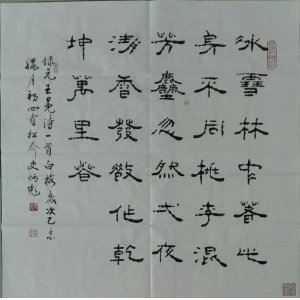 冰雪林中著此
身不同桃李混
芳塵忽然弌夜
清香發散作乾
坤萬里春
录元王冕詩一首白梅歲次乙未
臘月初四